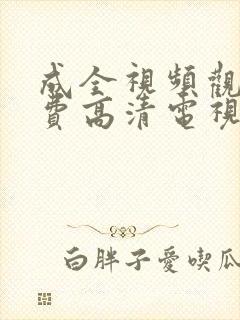 成全視頻觀
費高清電視
白胖子愛喫瓜